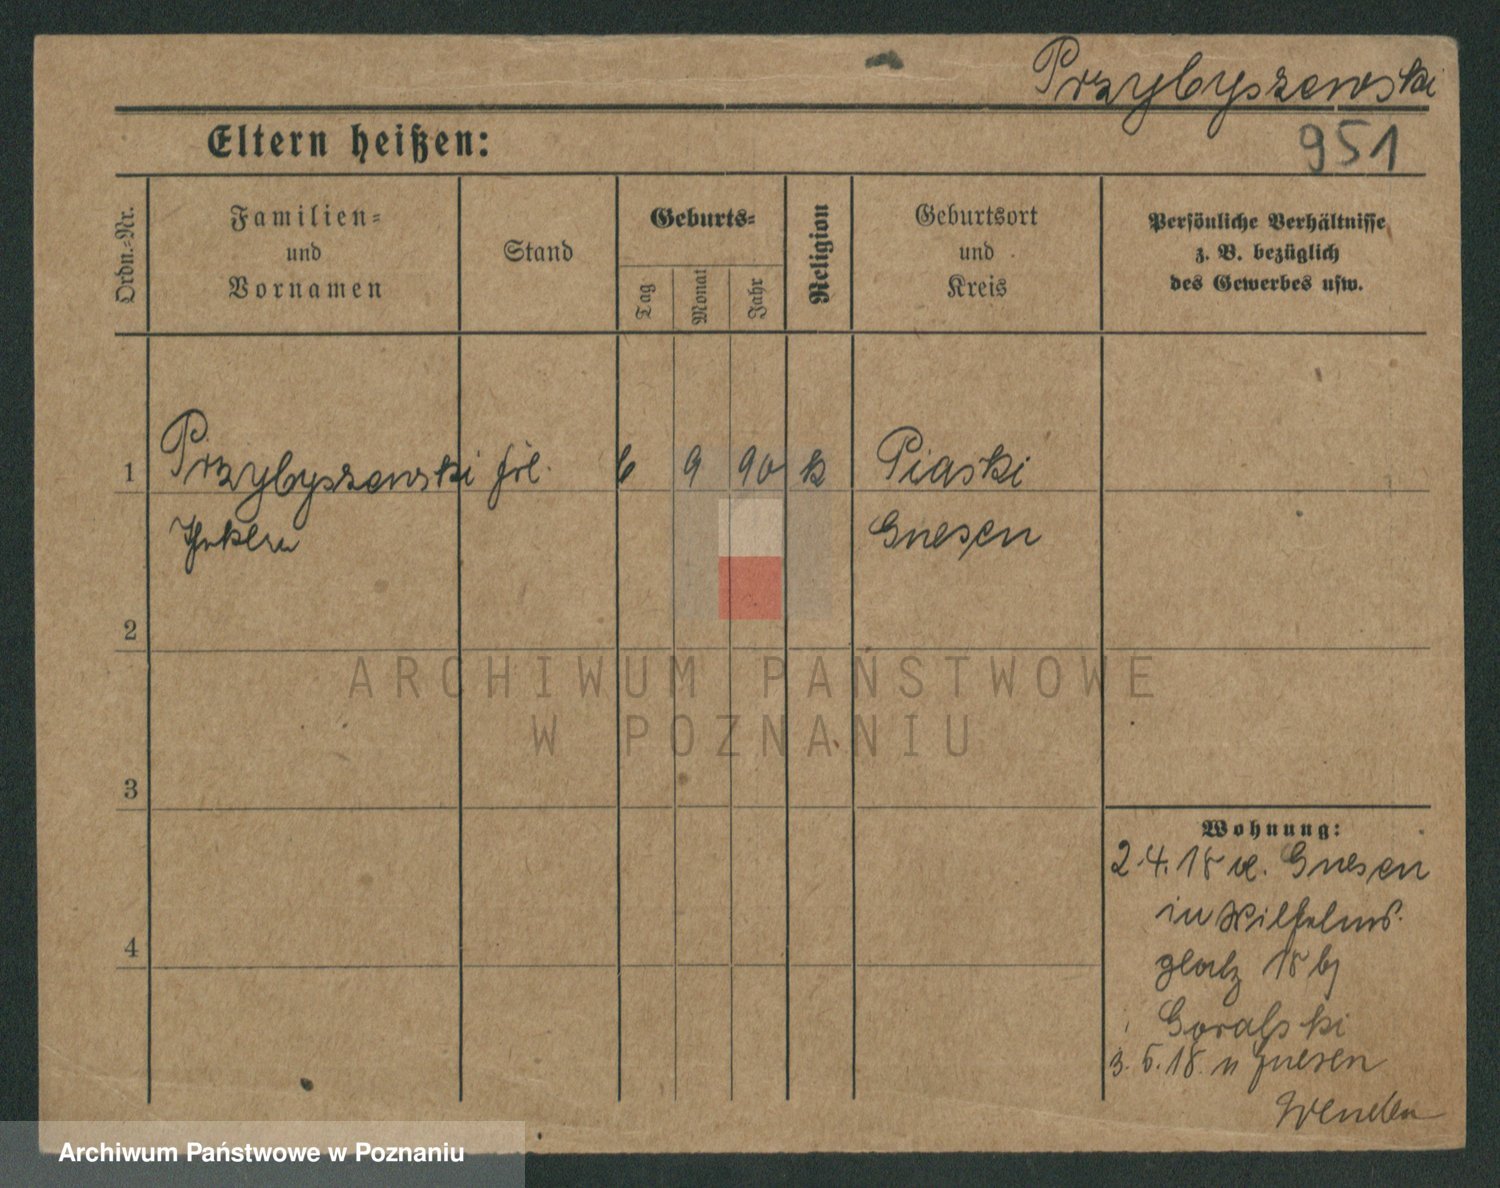 Przybyszewski
951
Eltern heißen:
Ordn.=Nr.
Familien=
und
Vornamen
Stand
Geburts=
Tag
Monat
Jahr
Religion
Geburtsort
und
Kreis
Persönliche Verhältnisse
z. B. bezüglich
des Gewerbes usw.
1 Przybyszewski frl. 6 9 90 k Piaski
Gnesen
2
ARCHIWUM PAŃSTWOWE
W POZNANIU
3
Wohnung:
2.4.18 Gnesen
in Wilhelms
platz 18 bj
Goralski
3.5.18 n Gnesen
4
Archiwum Państwowe w Poznaniu